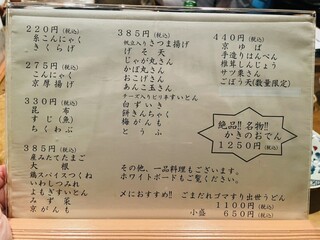 220円(税込)
糸こんにゃく
きくらげ
275円(税込)
こんにゃく
京厚揚げ
330円(税込)
昆布
すじ(魚)
ちくわぶ
385円(税込)
産みたてたまご
大根
鶏スパイスつくね
いわしつみれ
よもぎすいとん
みず菜
京がんも
385円(税込)
帆立入りさつま揚げ
げそ天
じゃが丸さん
かば丸さん
おこげさん
あんこ玉さん
チーズ入りピリ辛すいとん
白ずいき
餅きんちゃく
梅がんも
とうふ
440円(税込)
京ゆば
手造りはんぺん
椎茸しんじょう
サツ栗さん
ごぼう天(数量限定)
絶品!!名物!!
かきのおでん
1250円(税込)
その他、一品料理もございます。
ホワイトボードもご覧ください。
〆におすすめ!!ごまだれゴマすり出世うどん
1100円(税込)
小盛 650円(税込)